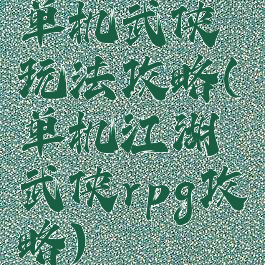 单机武侠
玩法攻略(
单机江湖
武侠rpg攻
略)